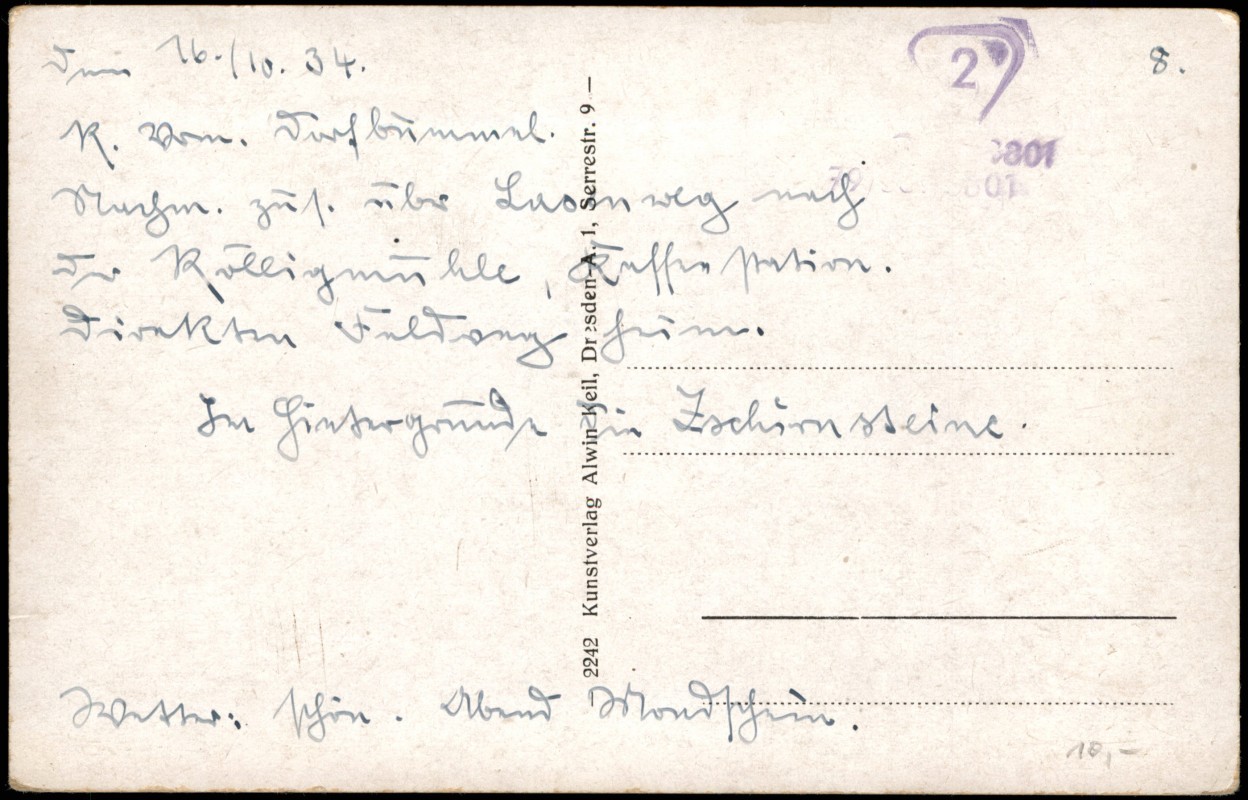 Den 16./10. 34.
8.
K. Vorm. Dorfbummel.
Nachm. zus. über weg nach
der Rölligmühle, Kaffeestation.
Direkten Feldweg heim.
Im Hintergrunde die Zschirnsteine.
Wetter: schön. Abend Mondschein.
2242 Kunstverlag Alwin Keil, Dresden-A. 1, Serrestr. 9 —
2
10,-